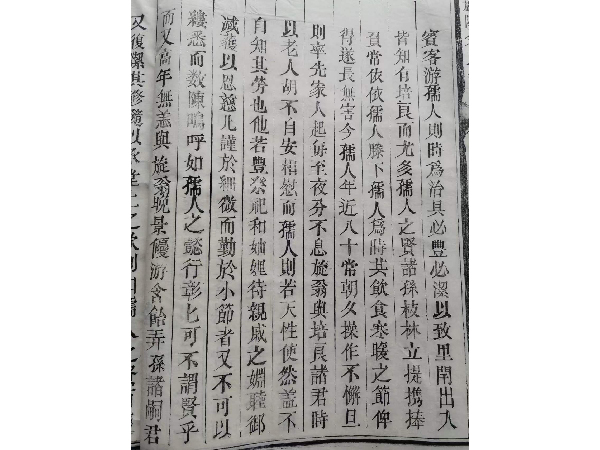 賓客游孺人則時為治具必豐必潔以致里閈出入
皆知有培良而尤多孺人之賢諸孫枝林立提携捧
負常依依孺人膝下孺人為時其飲食寒暖之節俾
得遂長無害今孺人年近八十常朝夕操作不懈旦
則率先家人起每至夜分不息旋翁與培良諸君時
以老人胡不自安相慰而孺人則若天性使然蓋不
自知其勞也他若豐祭祀和妯娌待親戚之婣睦御
臧獲以恩慈凡謹於細微而勤於小節者又不可以
縷悉而数陳嗚呼如孺人之懿行彰七可不謂賢乎
而又高年無恙與旋翁晚景優游含飴弄孫諸嗣君
又復潔其修隨以承堂上之歡則孺人之